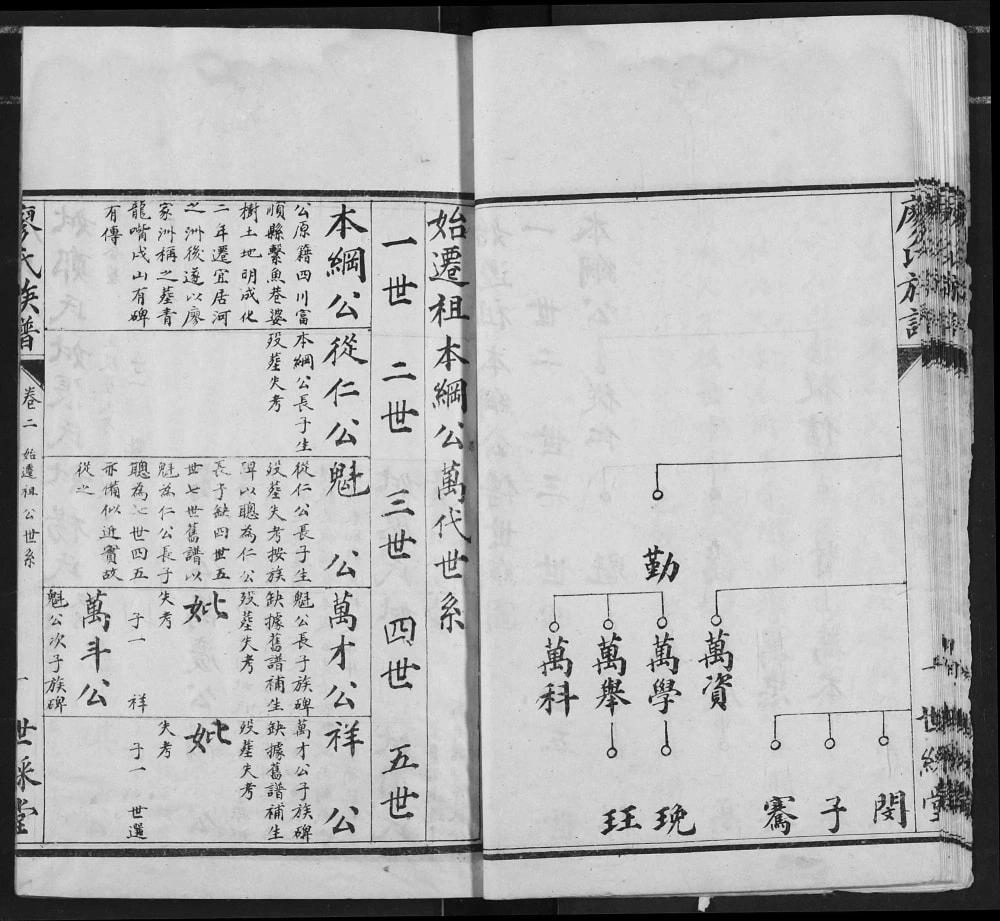 廖氏族譜
勤
萬資
萬學
萬舉
萬科
閔
子
騫
玨
始遷祖本綱公萬代世系
一世 二世 三世 四世 五世
本綱公
公原籍四川富
順縣繫魚巷婆
樹土地明成化
二年遷宜居河
之洲後遂以廖
家洲稱之墓青
龍嘴戌山有碑
有傳
從仁公
本綱公長子生
歿葬失考
魁公
從仁公長子生
歿葬失考按族
碑以聰為仁公
長子缺四世五
世七世舊譜以
魁為仁公長子
聰為七世四五
亦備似近實故
從之
萬才公
魁公長子族碑
缺據舊譜補生
歿葬失考
妣
失考
子一 祥
萬斗公
魁公次子族碑
祥公
萬才公子族碑
缺據舊譜補生
歿葬失考
妣
失考
子一 世選
廖氏族譜
卷二 始遷祖公世系
一
世綵堂